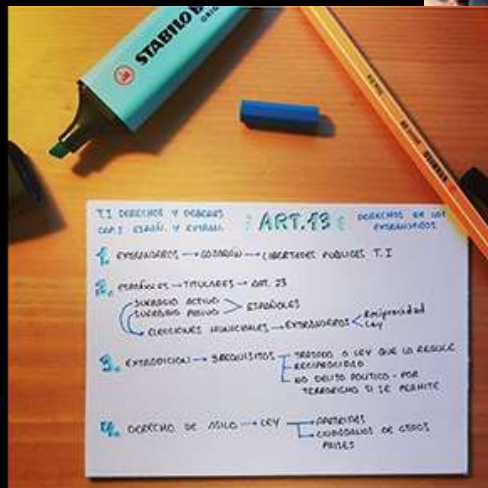 STABILO BOSS
ORIG
T.I DERECHOS Y DEBERES
CAP.I ESPAÑ. Y EXTRANJ.
ART.13
DERECHOS DE LOS
EXTRANJEROS
1. EXTRANJEROS → GOZARÁN → LIBERTADES PÚBLICAS T.I
2. ESPAÑOLES → TITULARES → ART. 23
SUFRAGIO ACTIVO
SUFRAGIO PASIVO > ESPAÑOLES
ELECCIONES MUNICIPALES → EXTRANJEROS < Reciprocidad
Ley
3. EXTRADICION → 3 REQUISITOS
TRATADO O LEY QUE LO REGULE
RECIPROCIDAD
NO DELITO POLITICO - POR
TERRORISMO SI SE PERMITE
4. DERECHO DE ASILO → LEY
APATRIDAS
CIUDADANOS DE OTROS
PAISES